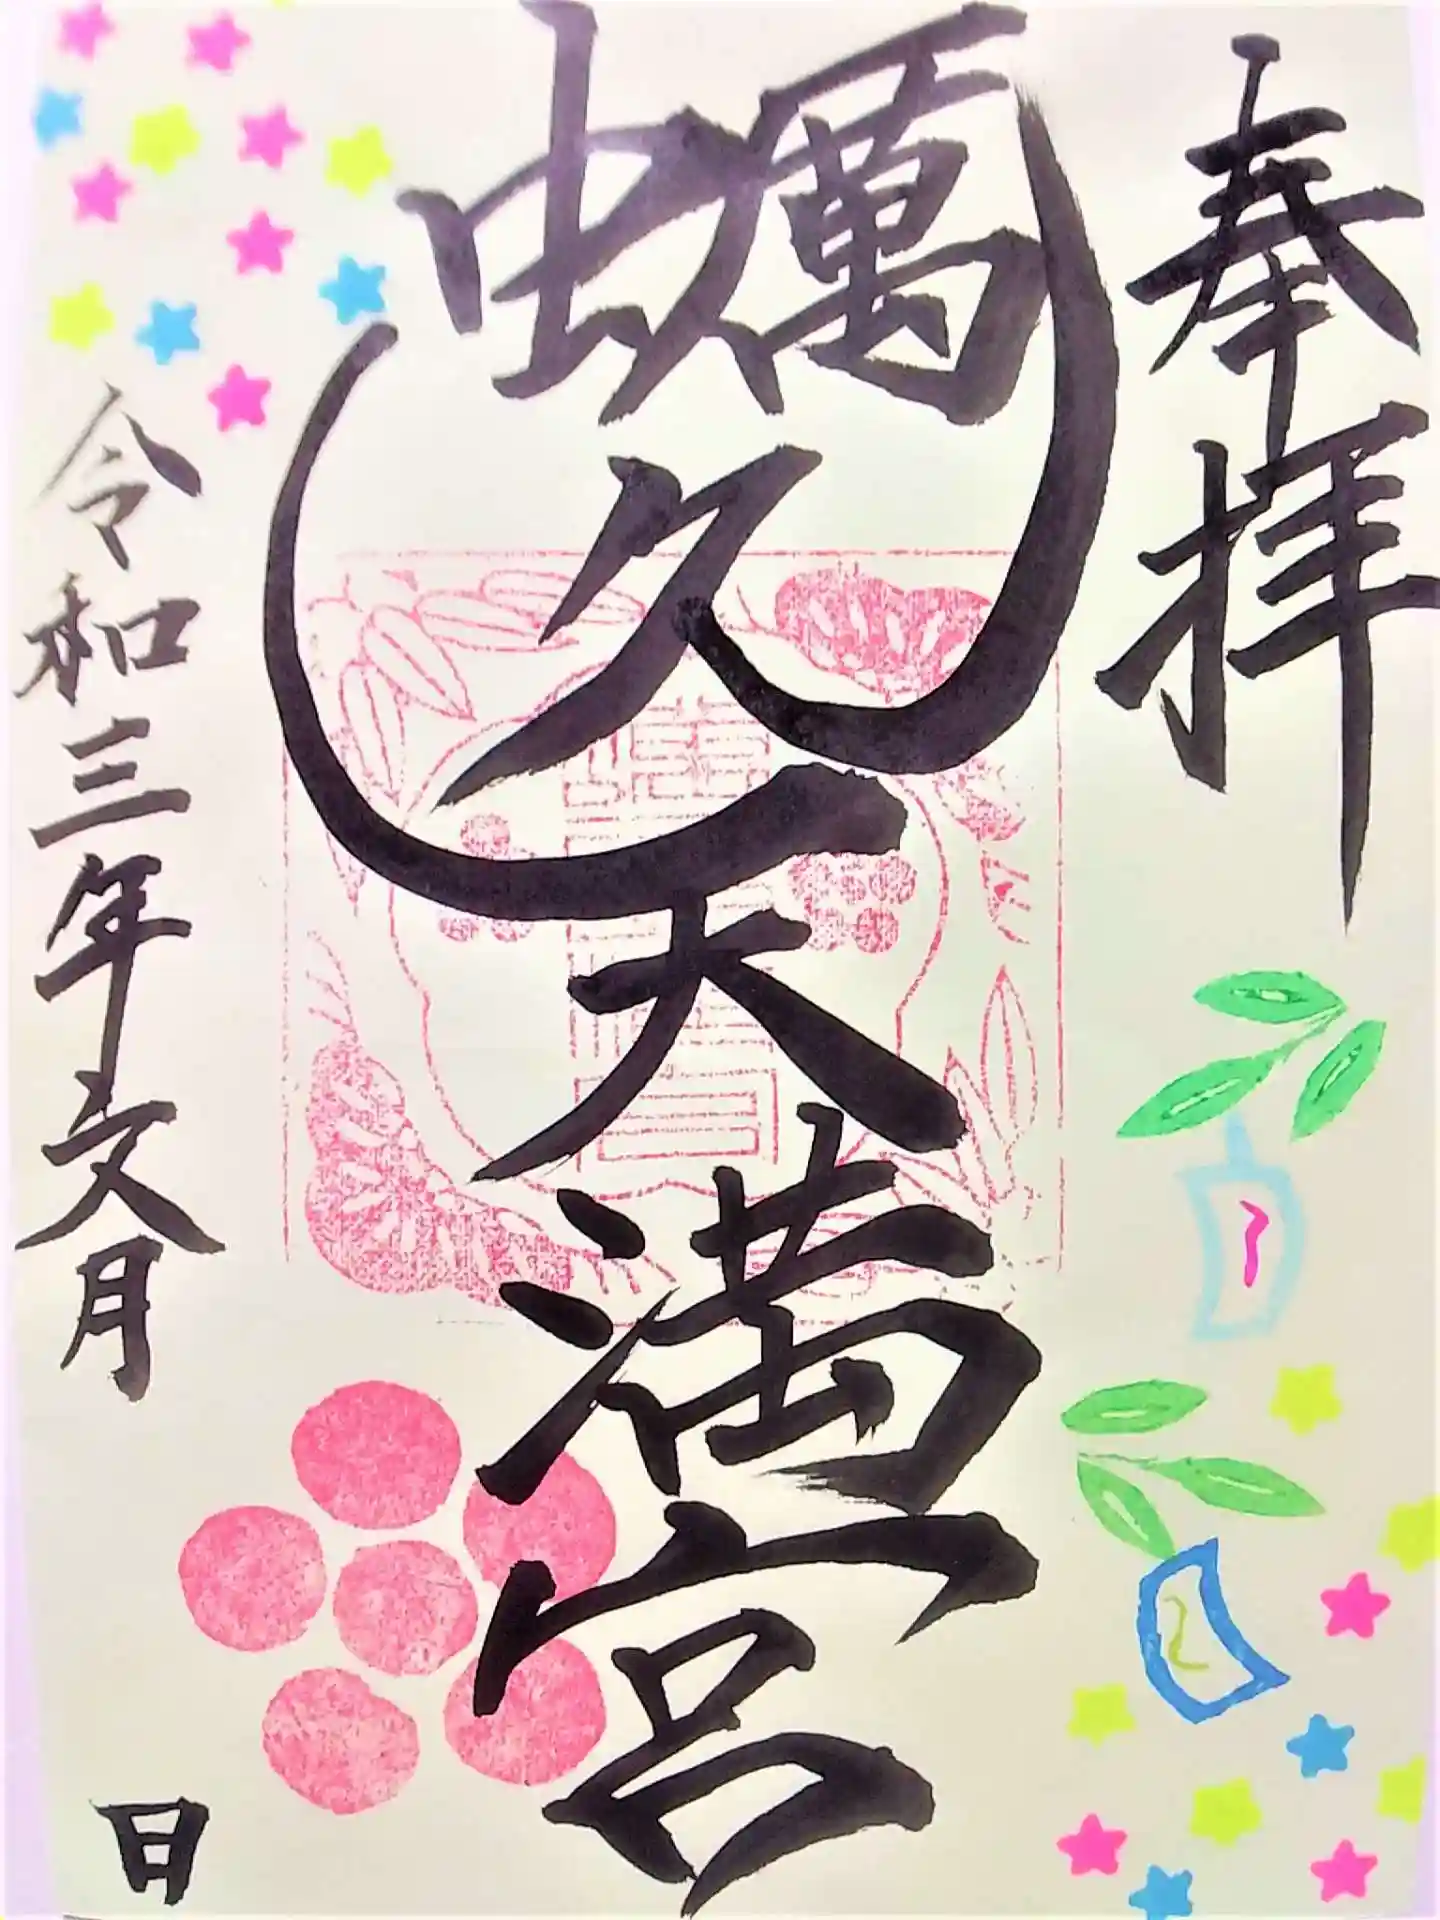 奉拝
蠣久天満宮
令和三年文月
日